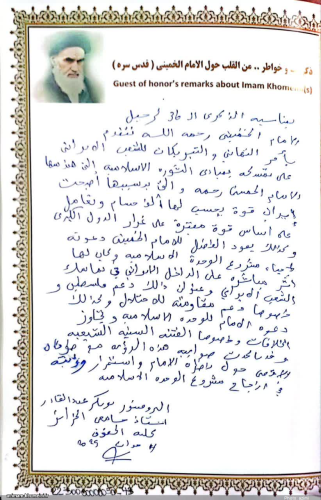 ذكريات و خواطر .. من القلب حول الامام الخميني ( قدس سره )
Guest of honor's remarks about Imam Khomeini(s)
بمناسبة الذكرى الـ لرحيل
الإمام الخميني رحمه الله نتقدم
بأحر التهاني والتبريكات للشعب الايراني
على تمسكه بمبادئ الثورة الاسلامية التي
الإمام الخميني رحمه والتي بسببها أصبحت
ايران قوة يحسب لها ألف حساب وتعامل
على أساس قوة معتبرة على غرار الدول الكبرى
وكذلك يعود الفضل للإمام الخميني دعوته
لإحياء مشروع الوحدة الاسلامية وكان لها
أثر مباشرة على الداخل الايراني في تماسك
الشعب الايراني وعنوان ذلك دعم فلسطين و
خصوصا دعم مقاومته للاحتلال وكذلك
دعوة الامام للوحدة الاسلامية وتجاوز
الخلافات وخصوصا الفتنة السنية الشيعية
صوابية هذه الرؤية مع
حول الامام واستمرار
في إنجاح مشروع الوحدة الاسلامية
البروفسور بوبكر عبد القادر
استاذ جامعي الجزائر
كلية الحقوق